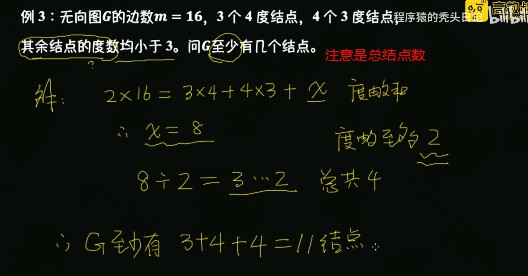 例 3：无向图G的边数m = 16，3 个 4 度结点，4 个 3 度结点
程序猿的秃头日
其余结点的度数均小于 3。问G至少有几个结点。
注意是总结点数
?
解：2×16 = 3×4+4×3+ x 度数和
∴ x = 8
度数至多 2
8÷2 = 3…2 总共 4
∴ G至少有 3+4+4=11结点